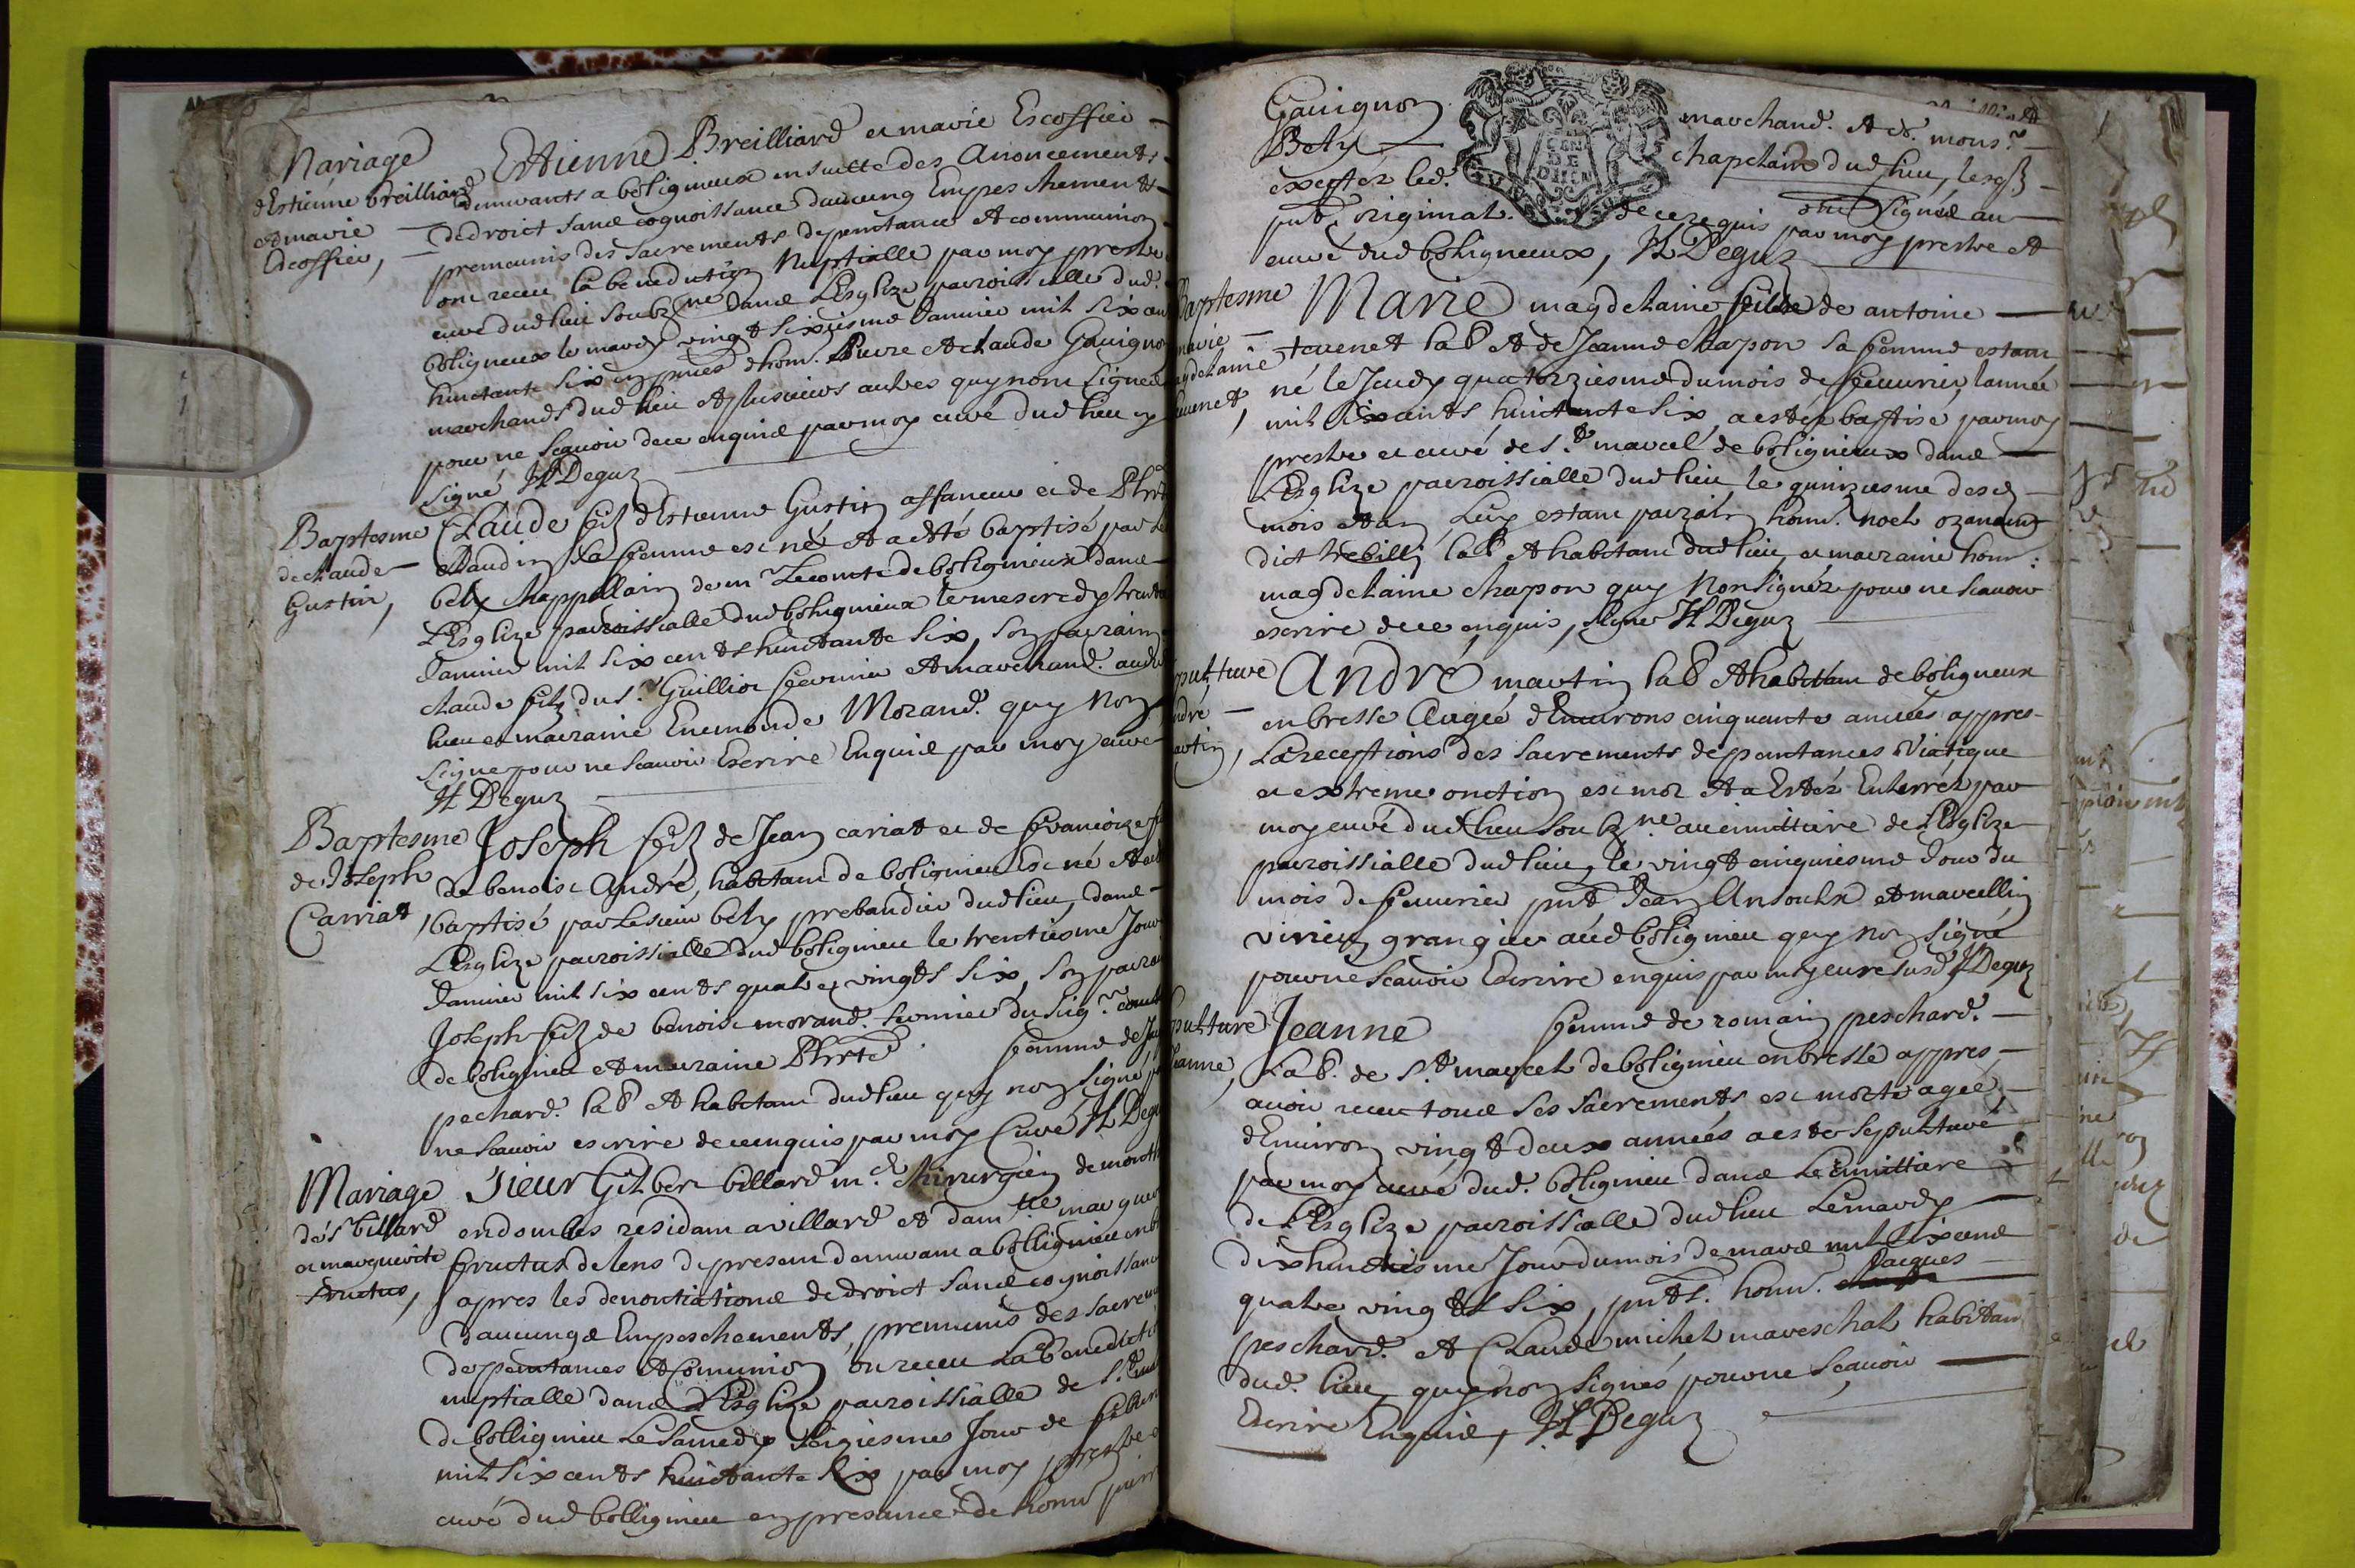 Mariage
d'Estienne breilliard
et marie
Escoffier,
Estienne Breilliard et marie Escoffier
demeurants a boligneux ensuitte des Anoncements
de droict sans cognoissance daucung Empeschements
premeunis des sacrements de penitance et communion
ont receu la benediction Nuptialle par moy prestre
curé dud lieu soubz.ne dans L'Esglize parroissialle dud.
boligneux le mardy vingt sixiesme Janvier mil six cents
huictante six en pnces d'hon. Pierre et claude Gauignon
marchands dud lieu et plusieurs autres quy nont signes
pour ne scauoir de ce enquis par moy curé dud lieu
signé H Deguz
Baptesme
de claude
Gustin,
Claude filz d'Estienne Gustin affaneur et de
claudin sa femme est né et a esté baptisé par le
bely chappellain de mr Lecomte de boligneux dans
L'Esglize parroissialle dud boligneux le mescredy trente
Janvier mil six cents huictante six, son parrain
claude filz du sr Guillioz fermier et marchand. aud
lieu et marraine Enemonde Morand. quy non
signe pour ne scauoir Escrire Enquis par moy curé
H Deguz
Baptesme
de Joseph
Carriat
Joseph filz de Jean cariat et de francoize
de benoist André, habitant de boligneu Est né et a
baptisé par Le sieur bely prebandier dud lieu, dans
L'Esglize parroissialle dud boligneu le trentiesme Jour
Janvier mil six cents quatre vingts six, son parrain
Joseph filz de benoist morand. fermier du sieg.r comte
de boligneu et marraine femme de
pechard. lab et habitant dud lieu quy non signé
ne scauoir escrire de ce enquis par moy Curé H Deguz
Mariage
de sr billard
et marguerite
fructus,
Sieur Gilbert billard m.e Chirurgien de
en dombes residant a villard et dam.lle
fructus de lens de present demeurant a bolligneu en
apres les denontiations de droict sans cognoissance
daucungs Empeschements, premunis des sacrements
de penitances et Comunion on receu La benediction
nuptialle dans L'Esglize parroissialle de S.t
de bolligneu Le samedy seiziesmes Jour de
mil six cents huictante six par moy prestre
curé dud bolligneu en presance de honn
Gauignon marchand. et mons.r
Bely chapelain dud lieu, lesq
exceptéz led. ont signés au
pnt original. de ce requis par moy prestre et
curé dud boligneux, H Deguz
Baptesme
marie
magdelaine
teuenet,
Marie magdelaine fille de antoine
teuenet lab et de Jeanne chapon sa femme estant
né le Jeudy quatorziesme du mois de feurier, lannée
mil six cents huictante six, a estéz baptise par moy
prestre et curé de s.t marcel de boligneux dans
L'Esglize parroissialle dud lieu le quinziesme desd
mois et an, Luy estant parrain honn. noel ozanam
dict lab et habitant dud lieu, et marraine honn:
magdelaine chapon quy Non signéz pour ne scauoir
escrire de ce enquis, signé H Deguz
André martin lab et habitant de boligneux
en bresse Aagée d'Enuirons cinquante années appres
La receptions des sacrements de penitances Viatique
et extreme onction est mor et a Estéz Enterréz par
moy curé dud lieu soubz.ne au cimittiere de L'Esglize
parroissialle dud lieu, le vingt cinquiesme Jour du
mois de feurier pnt Jean et marcellin
virieu granger aud boligneu quy non signé
pour ne scauoir Escrire enquis par moy cure susd H Deguz
Jeanne femme de romain peschard.
Lab. de s.t marcel de boligneu en bresse appres
auoir receu tous ses sacrements est morte agée,
d'Enuiron vingt deux années a este sepulturé
par moy curé dud. boligneu dans Le cimittiere
de L'Esglize parroissialle dud lieu Le mardy
dix huictiesme Jour du mois de mars mil six cens
quatre vingts six, pnts. honn. Jacques
peschard. et Claude michel mareschal habitant
dud. lieu, quy non signés pour ne scauoir
Escrire Enquis, H Deguz